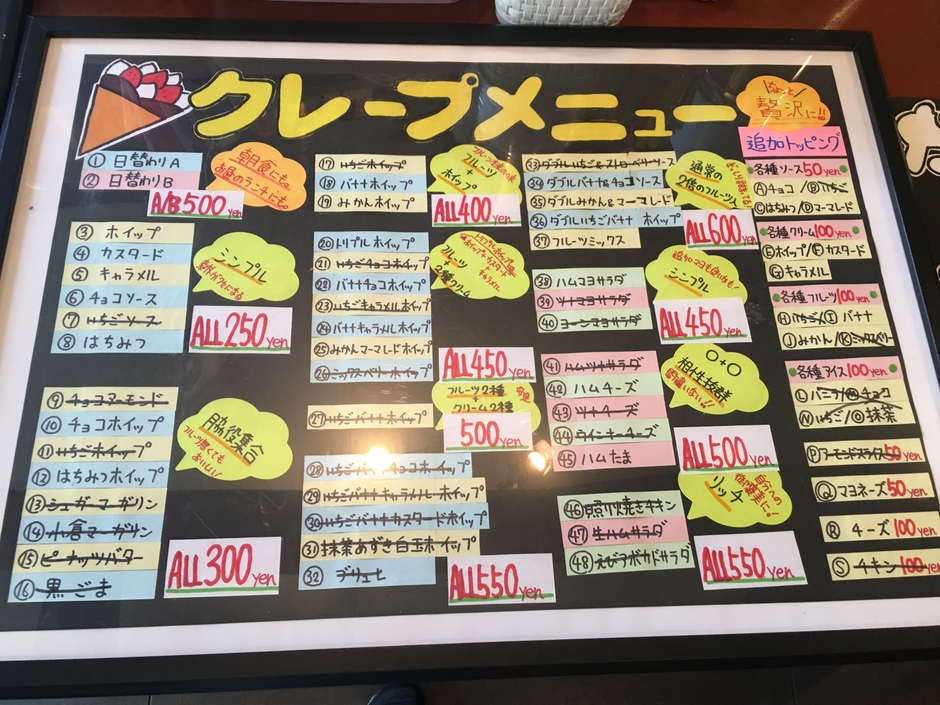 クレープメニュー
① 日替わりA
② 日替わりB
朝食にも。
お昼のランチにも。
A/B 500 yen
③ ホイップ
④ カスタード
⑤ キャラメル
⑥ チョコソース
⑦ いちごソース
⑧ はちみつ
シンプル
ALL 250 yen
⑨ チョコアーモンド
⑩ チョコホイップ
⑪ いちごホイップ
⑫ はちみつホイップ
⑬ シュガーマーガリン
⑭ 小倉マーガリン
⑮ ピーナッツバター
⑯ 黒ごま
脇役集合
フルーツ無くても
おいしい!
ALL 300 yen
⑰ いちごホイップ
⑱ バナナホイップ
⑲ みかんホイップ
フルーツ
+
ホイップ
ALL 400 yen
⑳ トリプルホイップ
㉑ いちごチョコホイップ
㉒ バナナチョコホイップ
㉓ いちごキャラメルホイップ
㉔ バナナキャラメルホイップ
㉕ みかんマーマレードホイップ
㉖ ミックスベリーホイップ
フルーツ
+
2種クリーム
ALL 450 yen
㉗ いちごバナナホイップ
フルーツ2種
+
クリーム2種
500 yen
㉘ いちごバナナチョコホイップ
㉙ いちごバナナキャラメルホイップ
㉚ いちごバナナカスタードホイップ
㉛ 抹茶あずき白玉ホイップ
㉜ ブリュレ
ALL 550 yen
㉝ ダブルいちご&ストロベリーソース
㉞ ダブルバナナ&チョコソース
㉟ ダブルみかん&マーマレード
㊱ ダブルいちごバナナ ホイップ
㊲ フルーツミックス
通常の
2倍のフルーツ入
ALL 600 yen
㊳ ハムマヨサラダ
㊴ ツナマヨサラダ
㊵ コーンマヨサラダ
シンプル
ALL 450 yen
㊶ ハムツナサラダ
㊷ ハムチーズ
㊸ ツナチーズ
㊹ ウインナーチーズ
㊺ ハムたま
○+○
相性抜群
間違いない!
ALL 500 yen
㊻ 照り焼きチキン
㊼ 生ハムサラダ
㊽ えびアボカドサラダ
自分への
御褒美に!
リッチ
ALL 550 yen
もっと
贅沢に!!
追加トッピング
各種ソース 50 yen
Ⓐチョコ/Ⓑいちご
Ⓒはちみつ/Ⓓマーマレード
各種クリーム 100 yen
Ⓔホイップ/Ⓕカスタード
Ⓖキャラメル
各種フルーツ 100 yen
Ⓗいちご/Ⓘバナナ
Ⓙみかん/Ⓚミックスベリー
各種アイス 100 yen
Ⓛバニラ/Ⓜチョコ
Ⓝいちご/Ⓞ抹茶
Ⓟアーモンドスライス 50 yen
Ⓠマヨネーズ 50 yen
Ⓡチーズ 100 yen
Ⓢチキン 100 yen